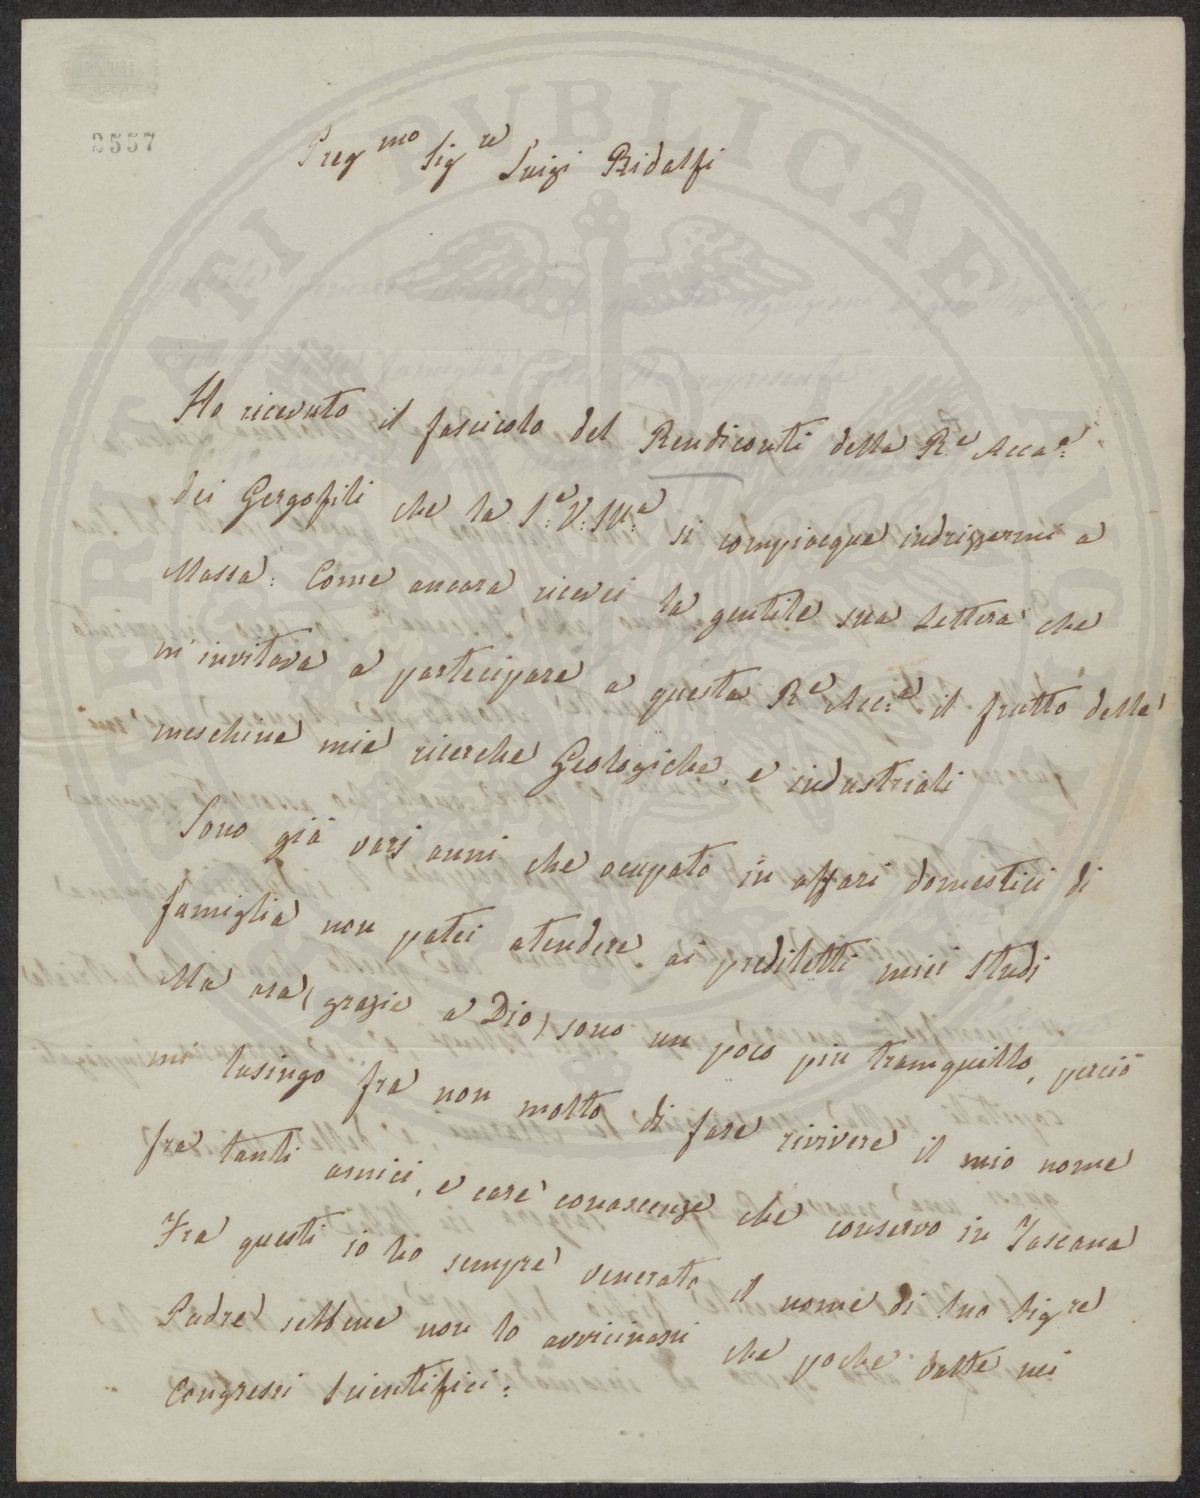 BATH
2557
PROSPERITATI PVBLICAE AVGENDAE
Preg.mo Sig.re Luigi Ridolfi
Ho ricevuto il fascicolo del Rendiconti della R.e Acca.a:
dei Gergofili che la S.a V: Ill:a si compiacque indrizzarmi a
Massa: Come ancora ricevei la gentile sua Lettera che
m'invitava a partecipare a questa R.e Acc:a il frutto delle
meschine mie ricerche Geologiche, e industriali
Sono già varj anni che ocupato in affari domestici di
famiglia non potei atendere ai prediletti miei studi
Ma ora (grazie a Dio) sono un poco piu tramquillo, perciò
mi lusingo fra non molto di fare rivivere il mio nome
fra tanti amici, e care conoscenze che conservo in Toscana
Fra questi io ho sempre venerato il nome di suo Sig.re
Padre sebbene non lo avvicinassi che poche volte nei
Congressi Scientifici: